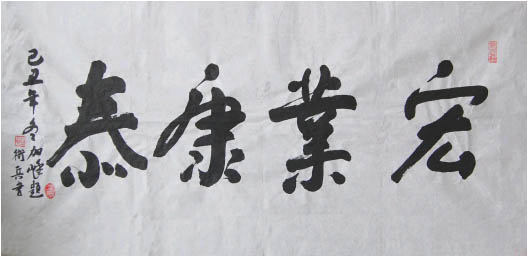 宏業康泰
己丑年冬加峰題
衛兵書